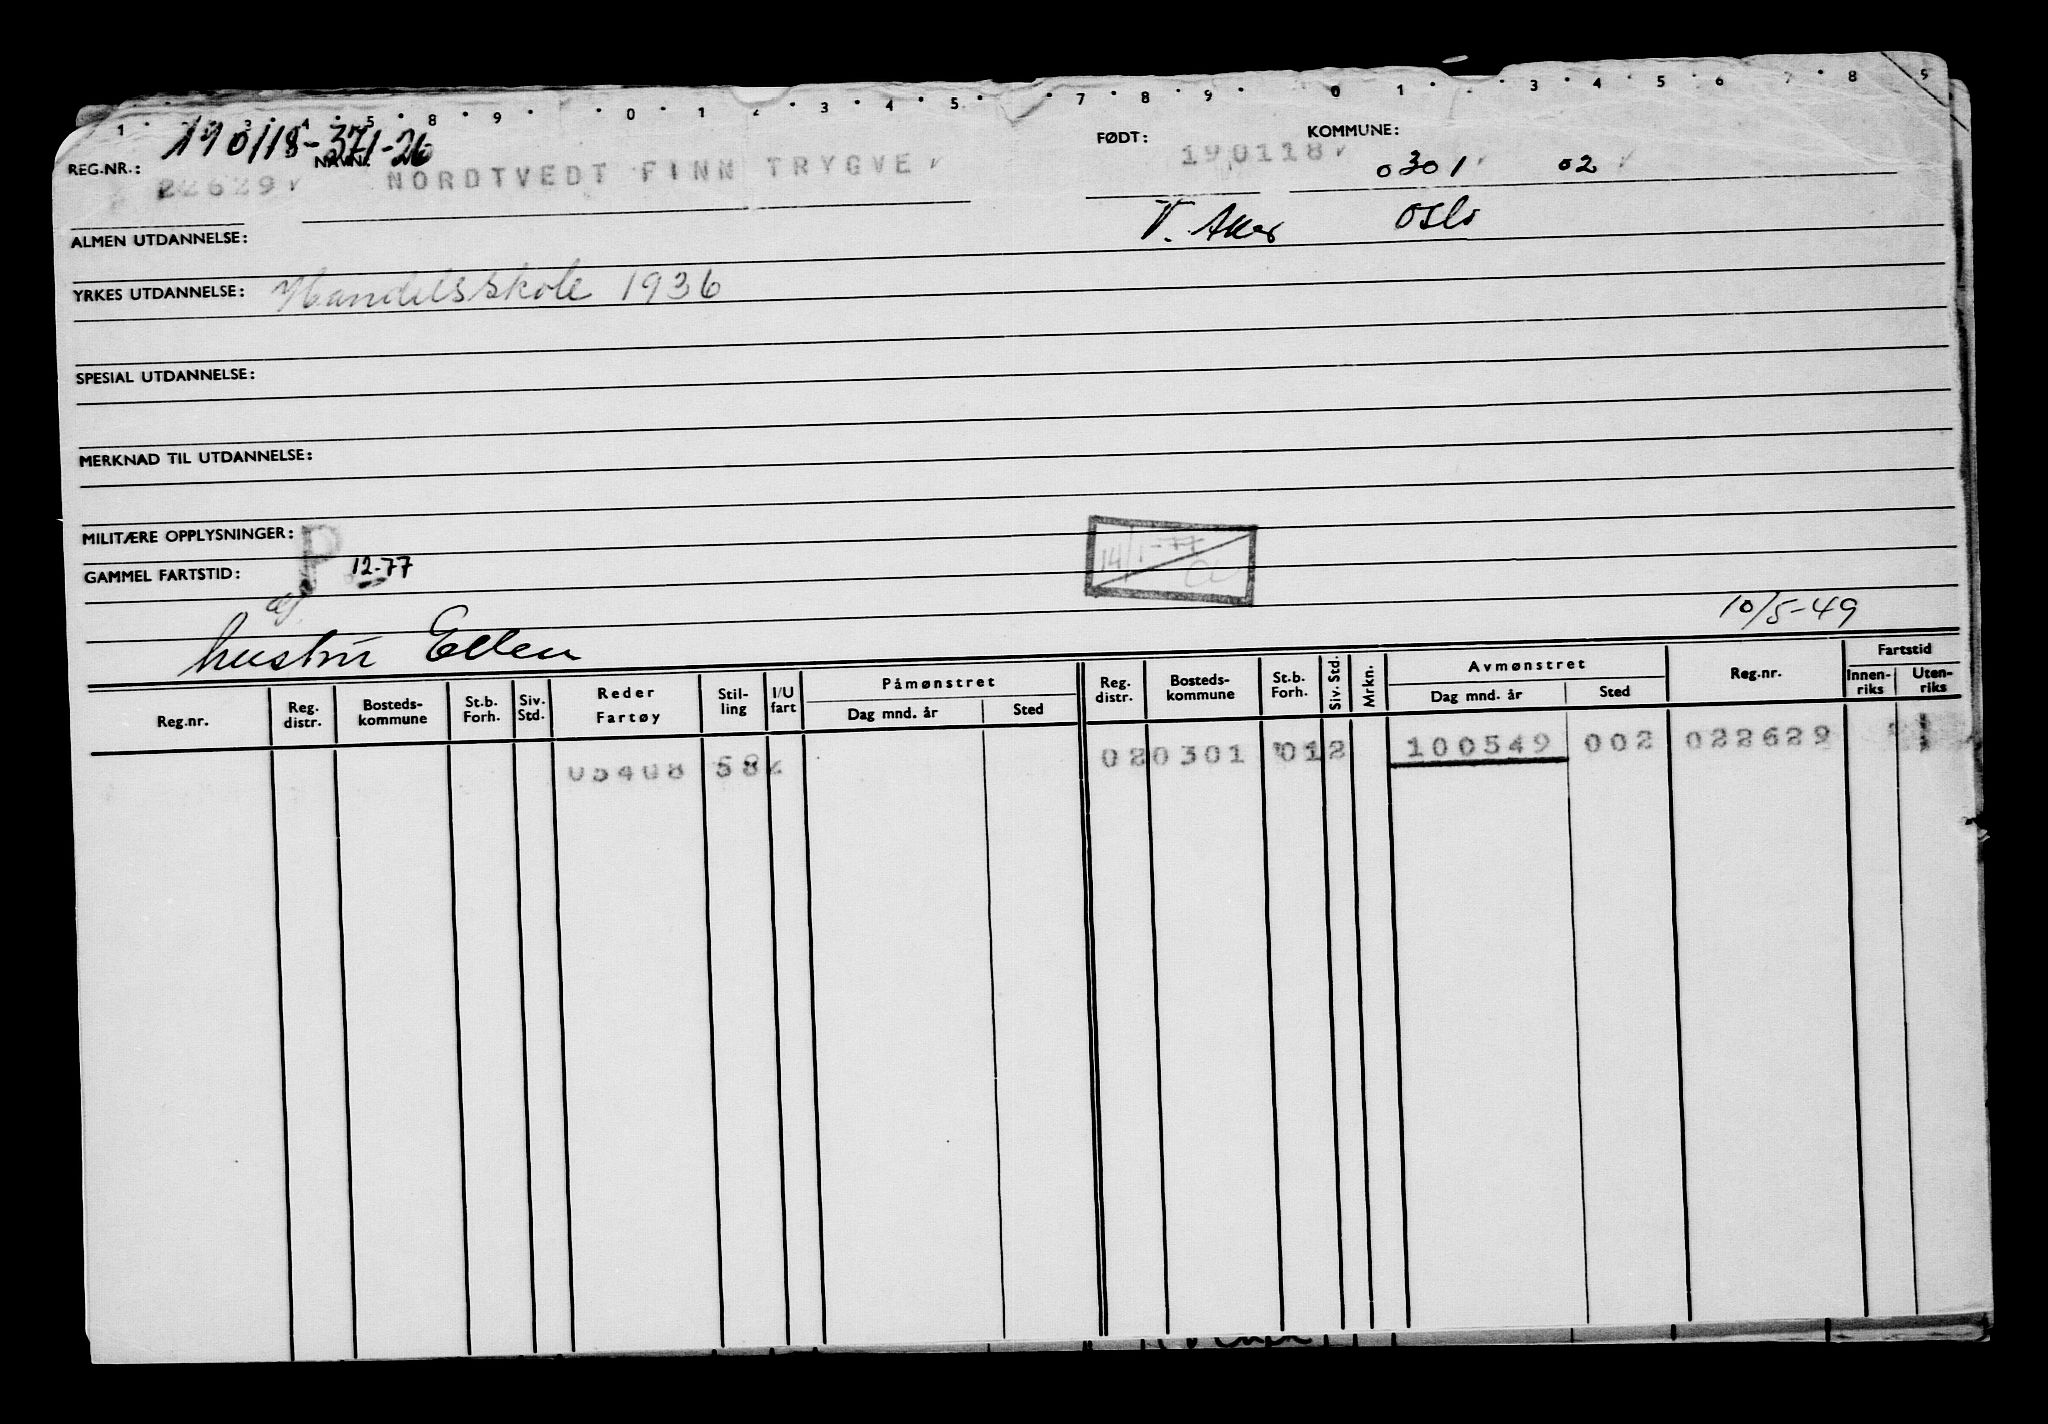 1 3 4 5 8 9 0 1 2 3 4 5 7 8 9 0 1 3 4 5 6 7 8 9
190118-371-26
REG.NR.: 22629 NAVN: NORDTVEDT FINN TRYGVE FØDT: 190118 KOMMUNE: 0301 02
V. Aker Oslo
ALMEN UTDANNELSE:
YRKES UTDANNELSE: Handelsskole 1936
SPESIAL UTDANNELSE:
MERKNAD TIL UTDANNELSE:
MILITÆRE OPPLYSNINGER: P
14/1-77
GAMMEL FARTSTID: 12-77
10/5-49
hustru Ellen
Reg.nr. Reg. distr. Bosteds-kommune St.b. Forh. Siv. Std. Reder Fartøy Stil-ling I/U fart Påmønstret Dag mnd. år Sted Reg. distr. Bosteds-kommune St.b. Forh. Siv. Std. Mrkn. Avmønstret Dag mnd. år Sted Reg.nr. Fartstid Innen-riks Uten-riks
05408 582 020301 012 100549 002 022629